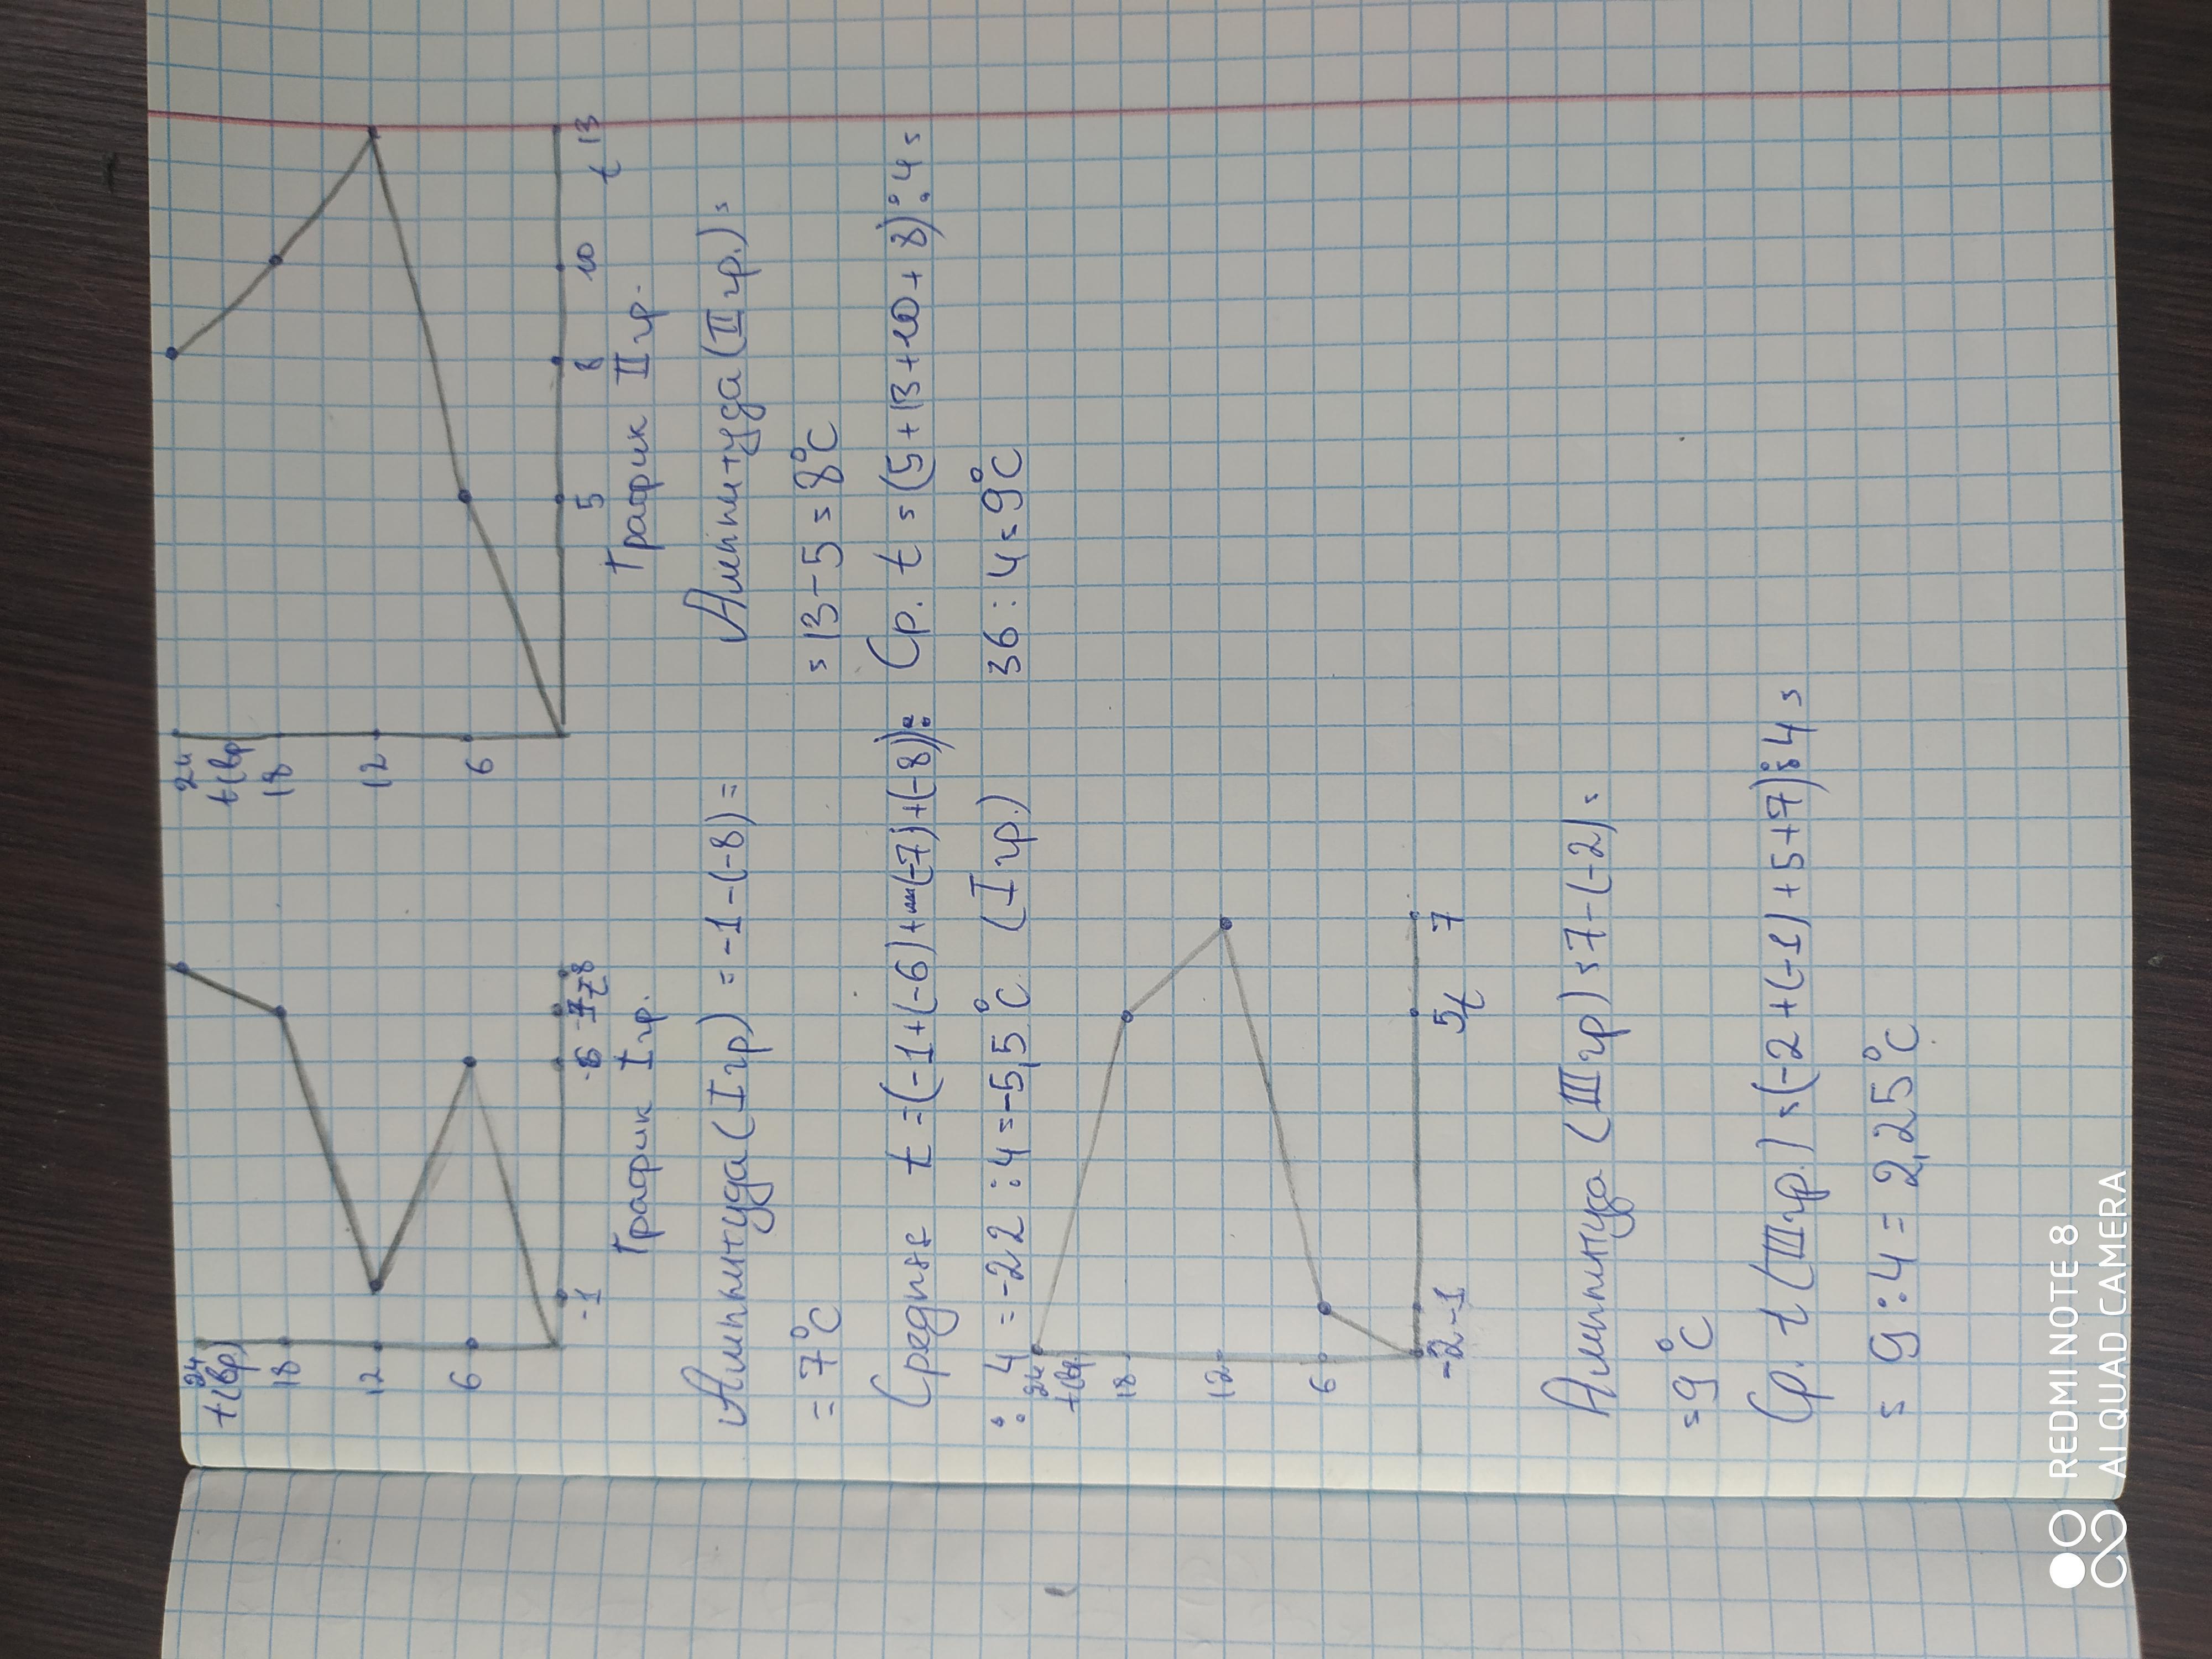 24
t(вр)
18
12
6
-1 -6 -7 -8
t
График I гр.
24
t(вр
18
12
6
5 8 10 t 13
График II гр.
Амплитуда (I гр) = -1-(-8) =
= 7°C
Средняя t = (-1+(-6)+(-7)+(-8)):
: 4 = -22 : 4 = -5,5°C (I гр.)
Амплитуда (II гр.) =
= 13-5 = 8°C
Ср. t = (5+13+10+8):4 =
36 : 4 = 9°C
24
t(вр.
18
12
6
-2 -1 5 t 7
Амплитуда (III гр) = 7-(-2) =
= 9°C
Ср. t (III гр.) = (-2+(-1)+5+7):4 =
= 9 : 4 = 2,25°C
REDMI NOTE 8
AI QUAD CAMERA